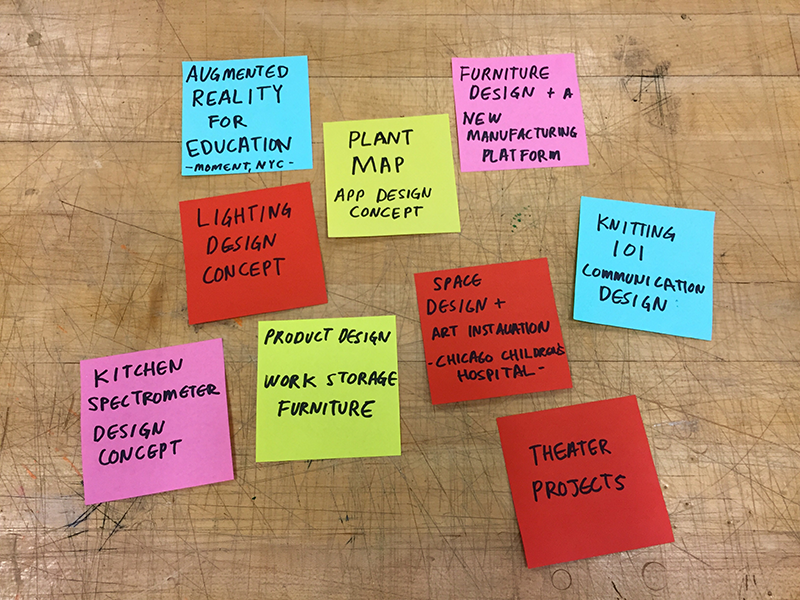 AUGMENTED
REALITY
FOR
EDUCATION
-MOMENT, NYC-
FURNITURE
DESIGN + A
NEW
MANUFACTURING
PLATFORM
PLANT
MAP
APP DESIGN
CONCEPT
LIGHTING
DESIGN
CONCEPT
KNITTING
101
COMMUNICATION
DESIGN
SPACE
DESIGN +
ART INSTALLATION
-CHICAGO CHILDREN'S
HOSPITAL-
PRODUCT DESIGN
WORK STORAGE
FURNITURE
KITCHEN
SPECTROMETER
DESIGN
CONCEPT
THEATER
PROJECTS